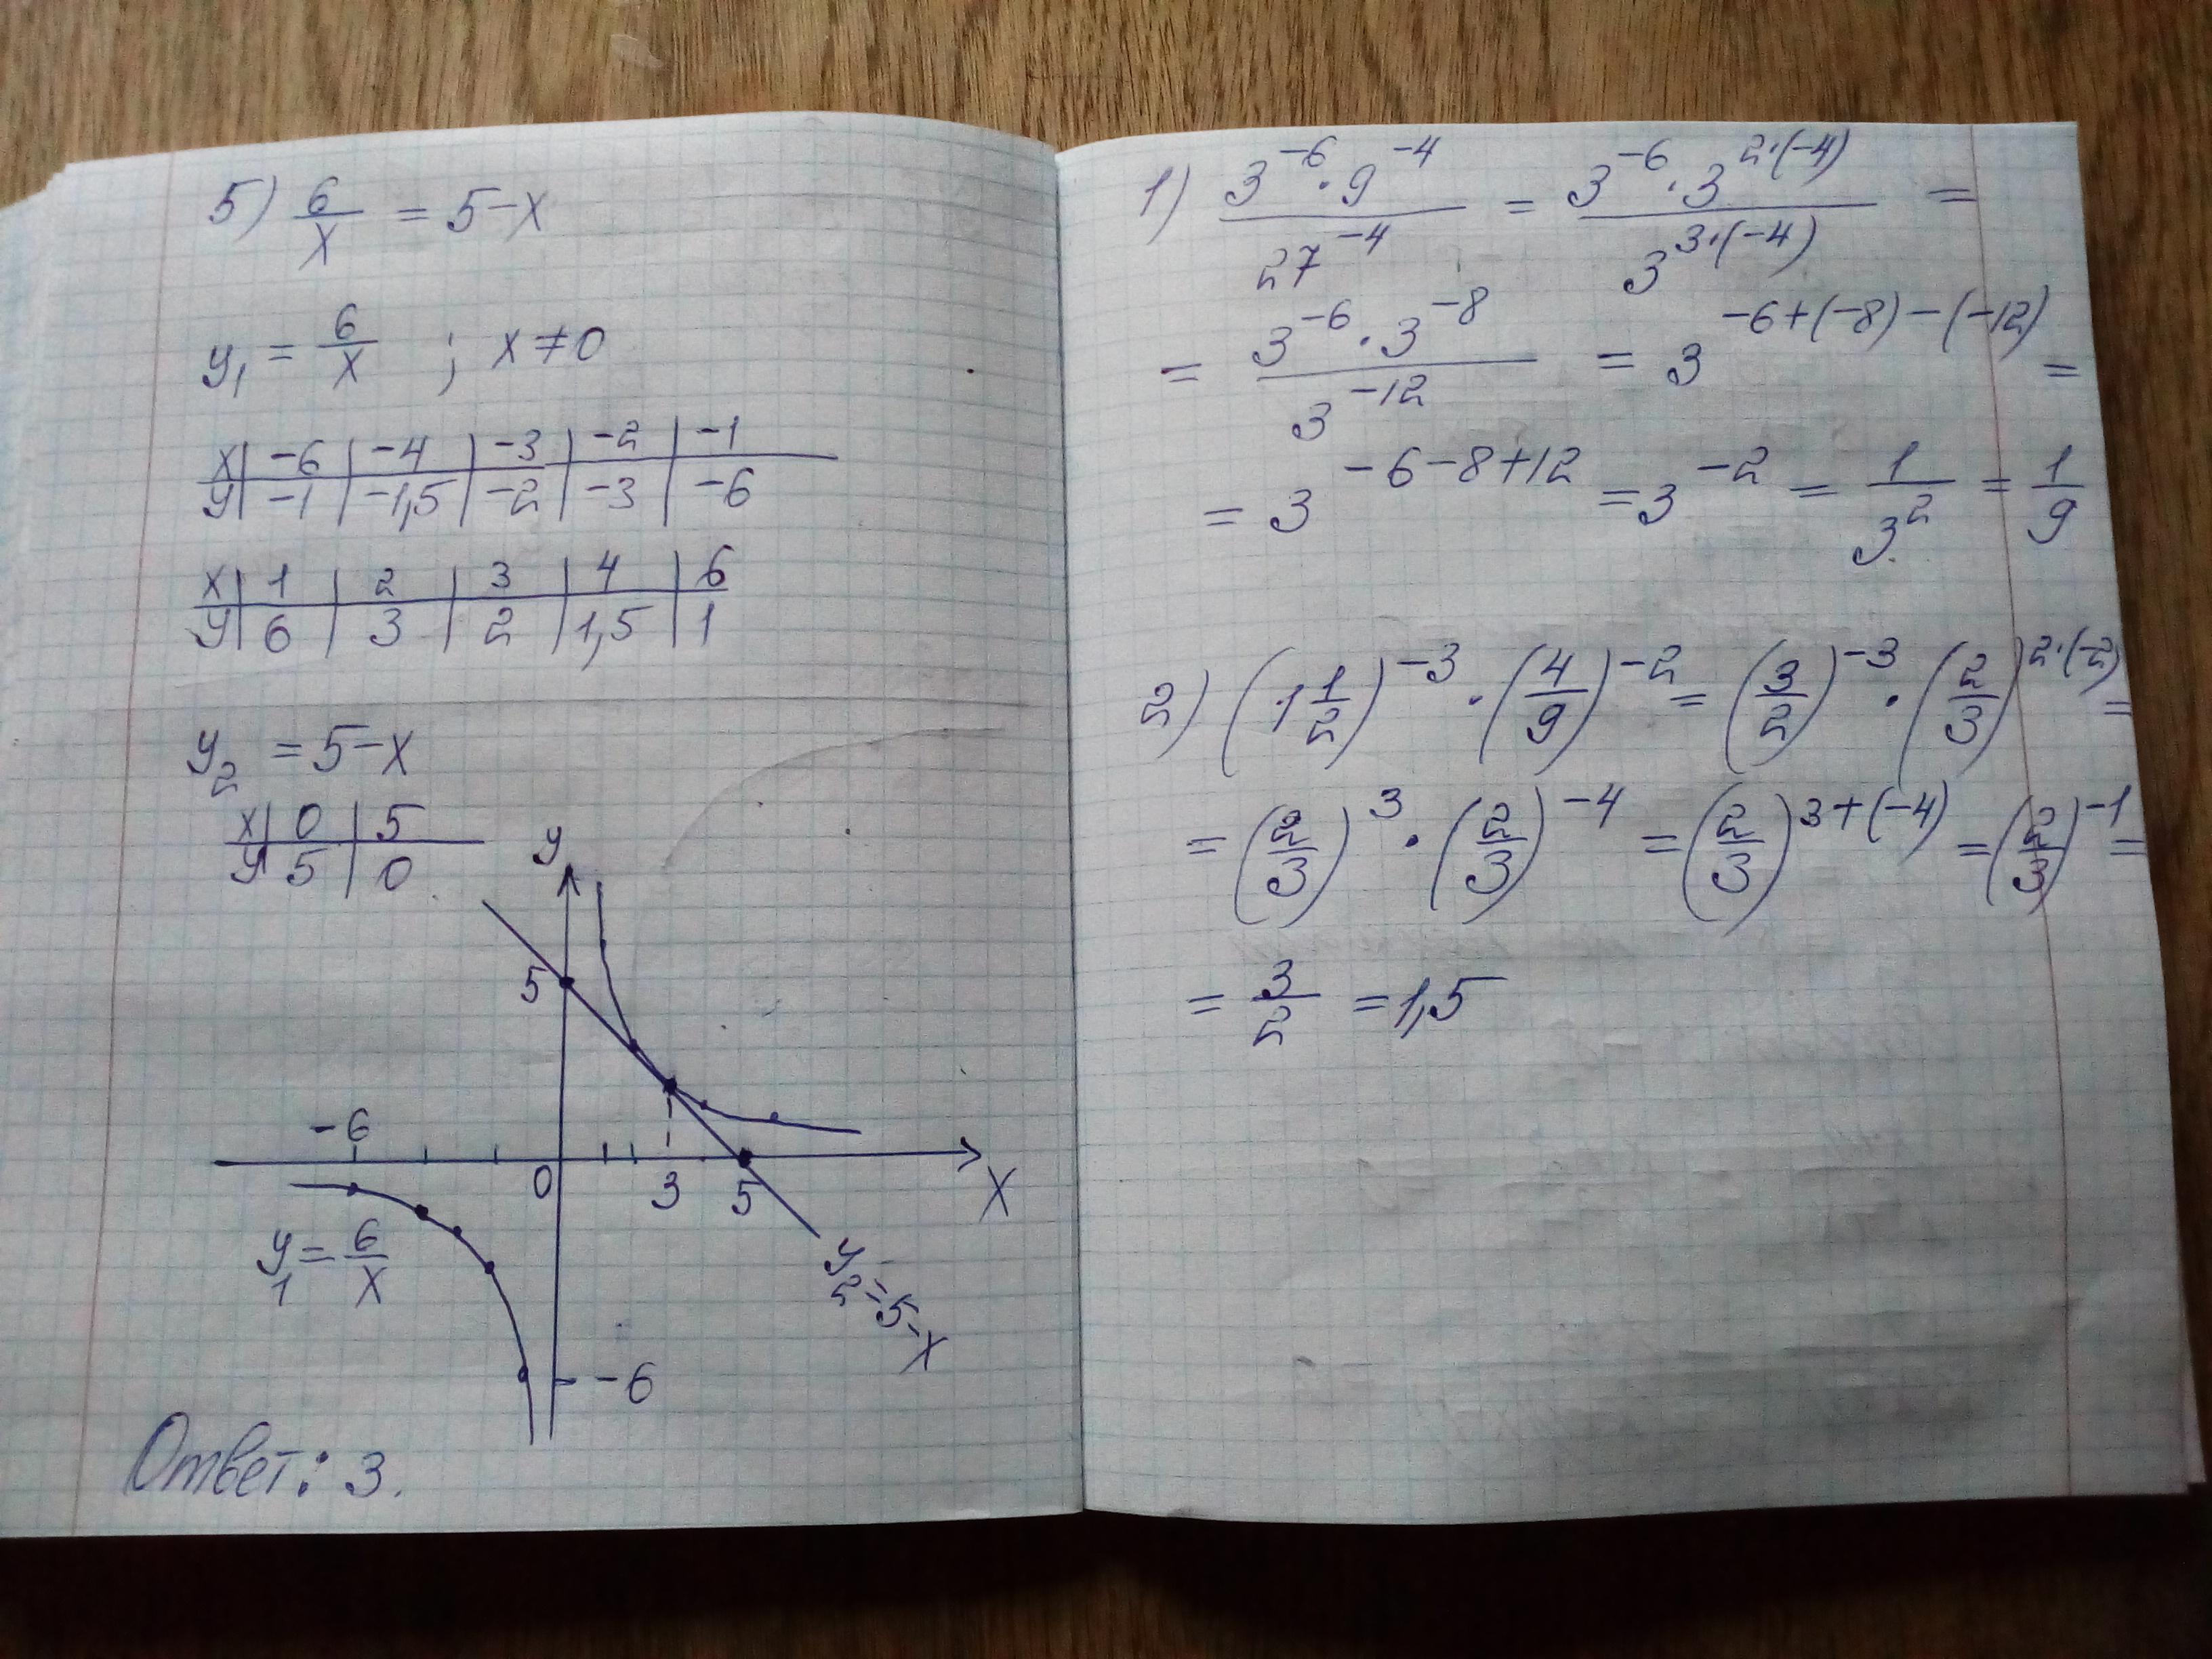 5) 6/x = 5-x
y₁ = 6/x ; x ≠ 0
x | -6 | -4 | -3 | -2 | -1
y | -1 | -1,5 | -2 | -3 | -6
x | 1 | 2 | 3 | 4 | 6
y | 6 | 3 | 2 | 1,5 | 1
y₂ = 5-x
x | 0 | 5
y | 5 | 0
y
5
-6
0 3 5 x
y₁ = 6/x
y₂ = 5-x
-6
Ответ: 3.
1) (3^(-6) · 9^(-4))/(27^(-4)) = (3^(-6) · 3^(2·(-4)))/(3^(3·(-4))) =
= (3^(-6) · 3^(-8))/(3^(-12)) = 3^(-6+(-8)-(-12)) =
= 3^(-6-8+12) = 3^(-2) = 1/3² = 1/9
2) (1 1/2)^(-3) · (4/9)^(-2) = (3/2)^(-3) · (2/3)^(2·(-2)) =
= (2/3)^3 · (2/3)^(-4) = (2/3)^(3+(-4)) = (2/3)^(-1) =
= 3/2 = 1,5